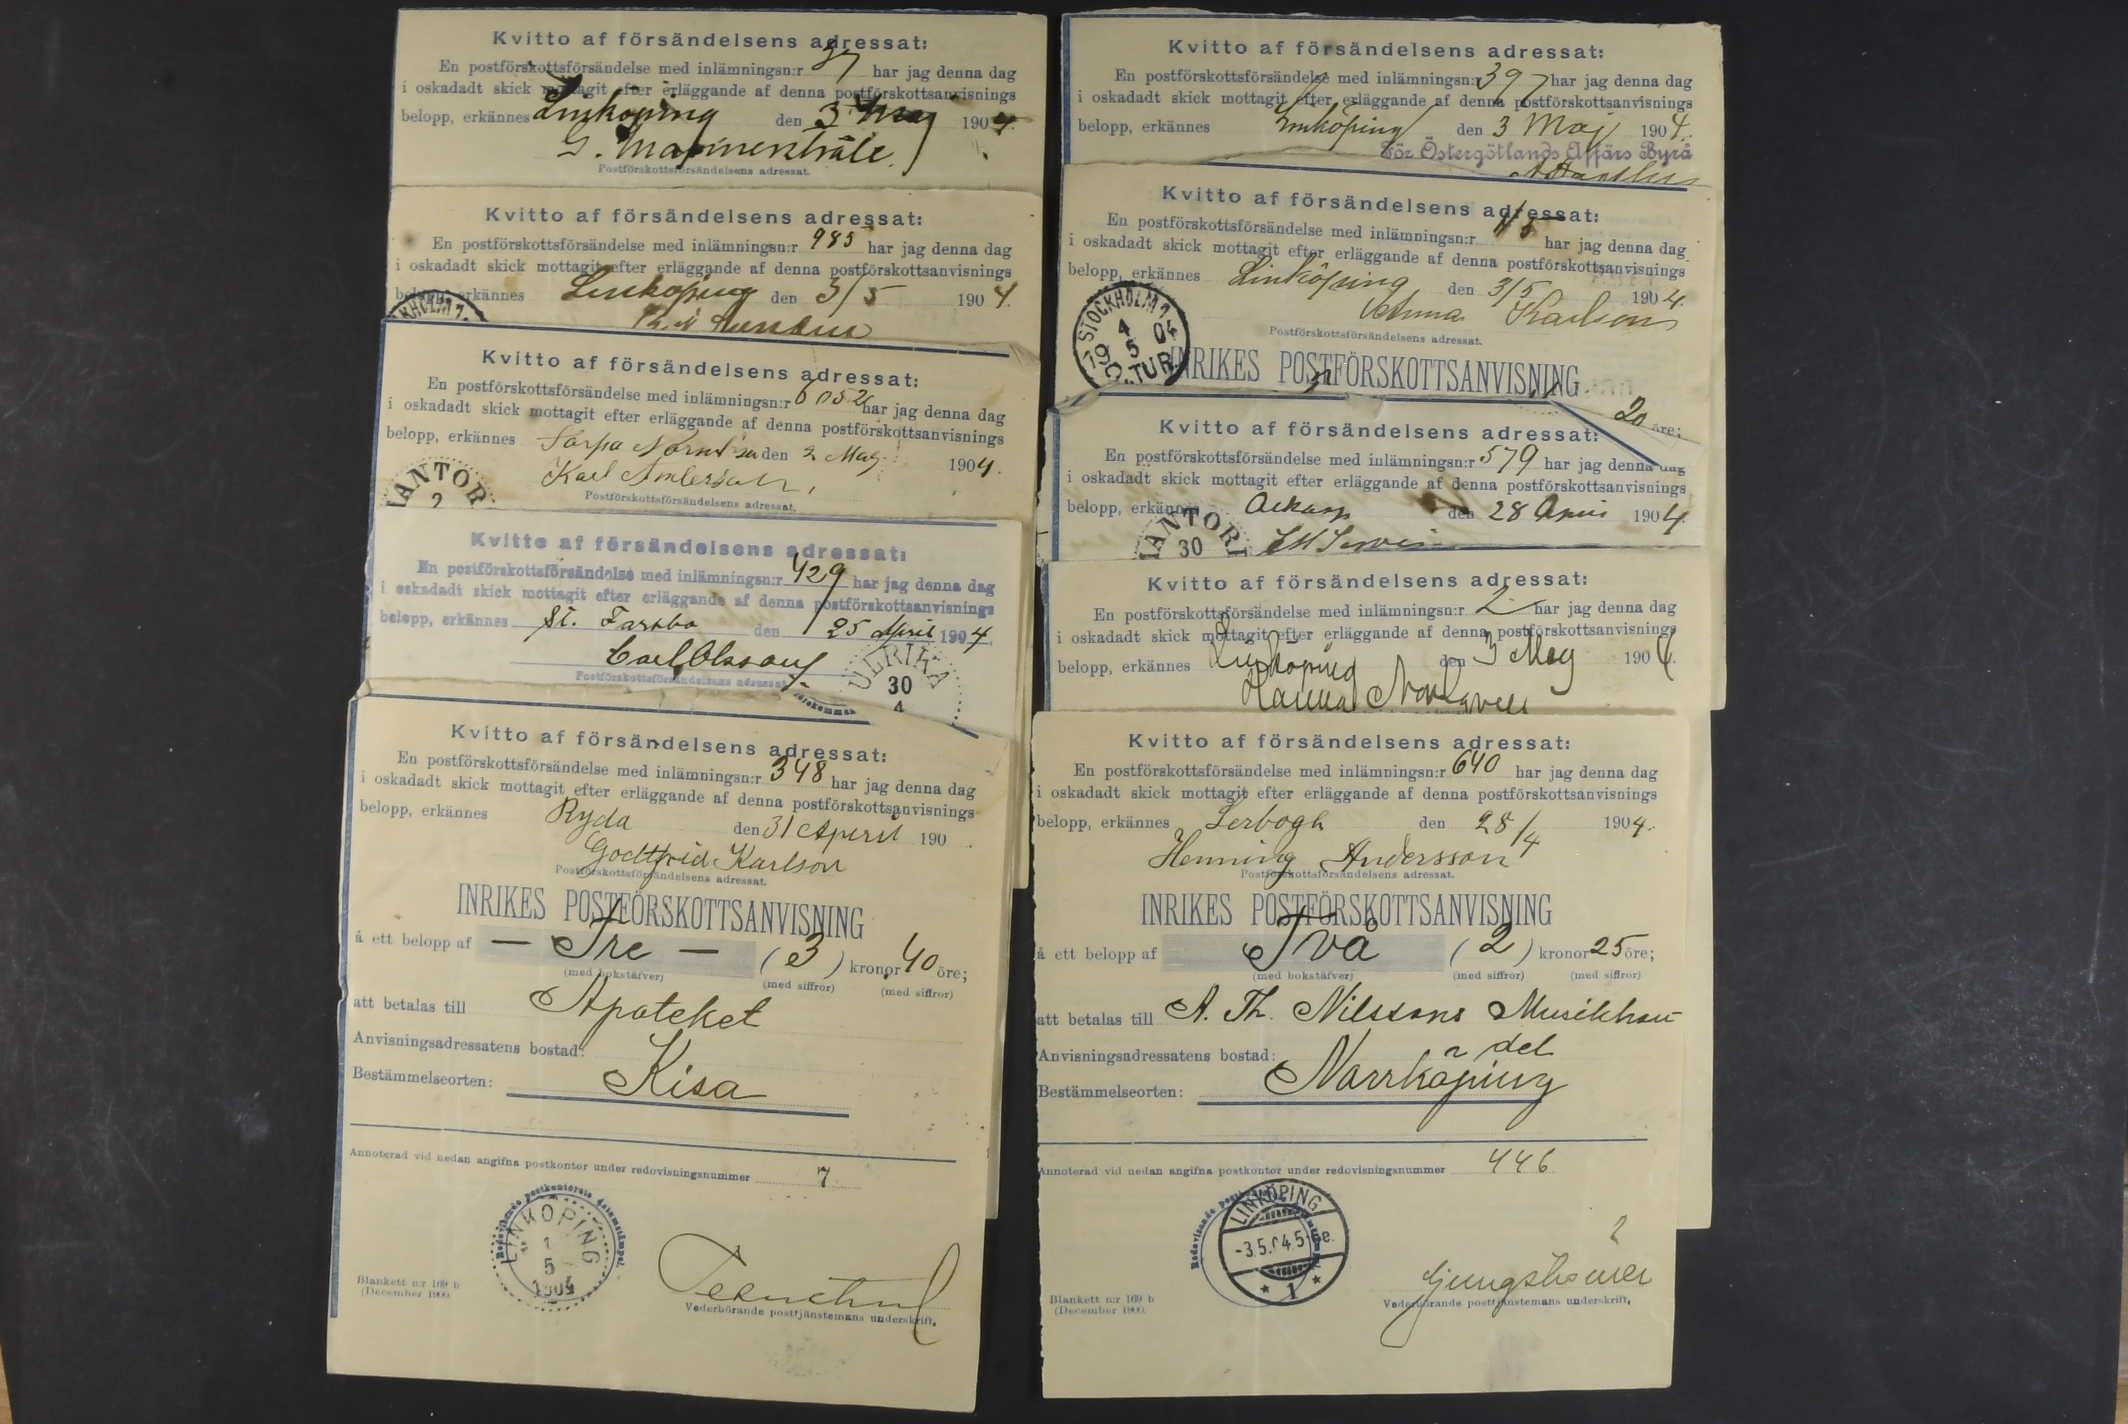 Kvitto af försändelsens adressat:
En postförskottsförsändelse med inlämningsn:r 37 har jag denna dag
i oskadadt skick mottagit efter erläggande af denna postförskottsanvisnings
belopp, erkännes Linköping den 3 Maj 1904.
Postförskottsförsändelsens adressat.
Kvitto af försändelsens adressat:
En postförskottsförsändelse med inlämningsn:r 985 har jag denna dag
i oskadadt skick mottagit efter erläggande af denna postförskottsanvisnings
belopp, erkännes Linköping den 3/5 1904.
Kvitto af försändelsens adressat:
En postförskottsförsändelse med inlämningsn:r 6052 har jag denna dag
i oskadadt skick mottagit efter erläggande af denna postförskottsanvisnings
belopp, erkännes den 2 Maj 1904.
Karl
KANTOR
2
Postförskottsförsändelsens adressat.
Kvitto af försändelsens adressat:
En postförskottsförsändelse med inlämningsn:r 429 har jag denna dag
i oskadadt skick mottagit efter erläggande af denna postförskottsanvisnings
belopp, erkännes St. Farsbo den 25 April 1904.
Carl Olsson
Postförskottsförsändelsens adressat.
ULRIKA
30
4
Kvitto af försändelsens adressat:
En postförskottsförsändelse med inlämningsn:r 348 har jag denna dag
i oskadadt skick mottagit efter erläggande af denna postförskottsanvisnings
belopp, erkännes Ryda den 31 Aperil 190
Godtfrid Karlson
Postförskottsförsändelsens adressat.
INRIKES POSTFÖRSKOTTSANVISNING
å ett belopp af — Tre — (3) kronor 40 öre;
(med bokstäfver) (med siffror) (med siffror)
att betalas till Apoteket
Anvisningsadressatens bostad:
Bestämmelseorten: Kisa
Annoterad vid nedan angifna postkontor under redovisningsnummer 7
Redovisande postkontorets datumstämpel.
LINKÖPING
1
5
1904
Blankett n:r 169 b
(December 1900.
Vederbörande posttjänstemans underskrift.
Kvitto af försändelsens adressat:
En postförskottsförsändelse med inlämningsn:r 397 har jag denna dag
i oskadadt skick mottagit efter erläggande af denna postförskottsanvisnings
belopp, erkännes Linköping den 3 Maj 1904.
För Östergötlands Affärs Byrå
Kvitto af försändelsens adressat:
En postförskottsförsändelse med inlämningsn:r har jag denna dag
i oskadadt skick mottagit efter erläggande af denna postförskottsanvisnings
belopp, erkännes Linköping den 3/5 1904.
Anna Karlson
Postförskottsförsändelsens adressat.
STOCKHOLM 1
4
19 5 04
TUR
INRIKES POSTFÖRSKOTTSANVISNING
20 öre;
Kvitto af försändelsens adressat:
En postförskottsförsändelse med inlämningsn:r 579 har jag denna dag
i oskadadt skick mottagit efter erläggande af denna postförskottsanvisnings
belopp, erkännes den 28 April 1904.
KANTOR
30
Kvitto af försändelsens adressat:
En postförskottsförsändelse med inlämningsn:r 2 har jag denna dag
i oskadadt skick mottagit efter erläggande af denna postförskottsanvisnings
belopp, erkännes Linköping den 3 Maj 1904.
Hanna
Kvitto af försändelsens adressat:
En postförskottsförsändelse med inlämningsn:r 640 har jag denna dag
i oskadadt skick mottagit efter erläggande af denna postförskottsanvisnings
belopp, erkännes den 28/4 1904.
Henning Andersson
Postförskottsförsändelsens adressat.
INRIKES POSTFÖRSKOTTSANVISNING
å ett belopp af Två (2) kronor 25 öre;
(med bokstäfver) (med siffror) (med siffror)
att betalas till A. Th. Nilssons Musikhan-
Anvisningsadressatens bostad: del
Bestämmelseorten: Norrköping
Annoterad vid nedan angifna postkontor under redovisningsnummer 446
LINKÖPING
-3.5.04.5-6e.
* 1 *
2
Blankett n:r 169 b
(December 1900.
Vederbörande posttjänstemans underskrift.